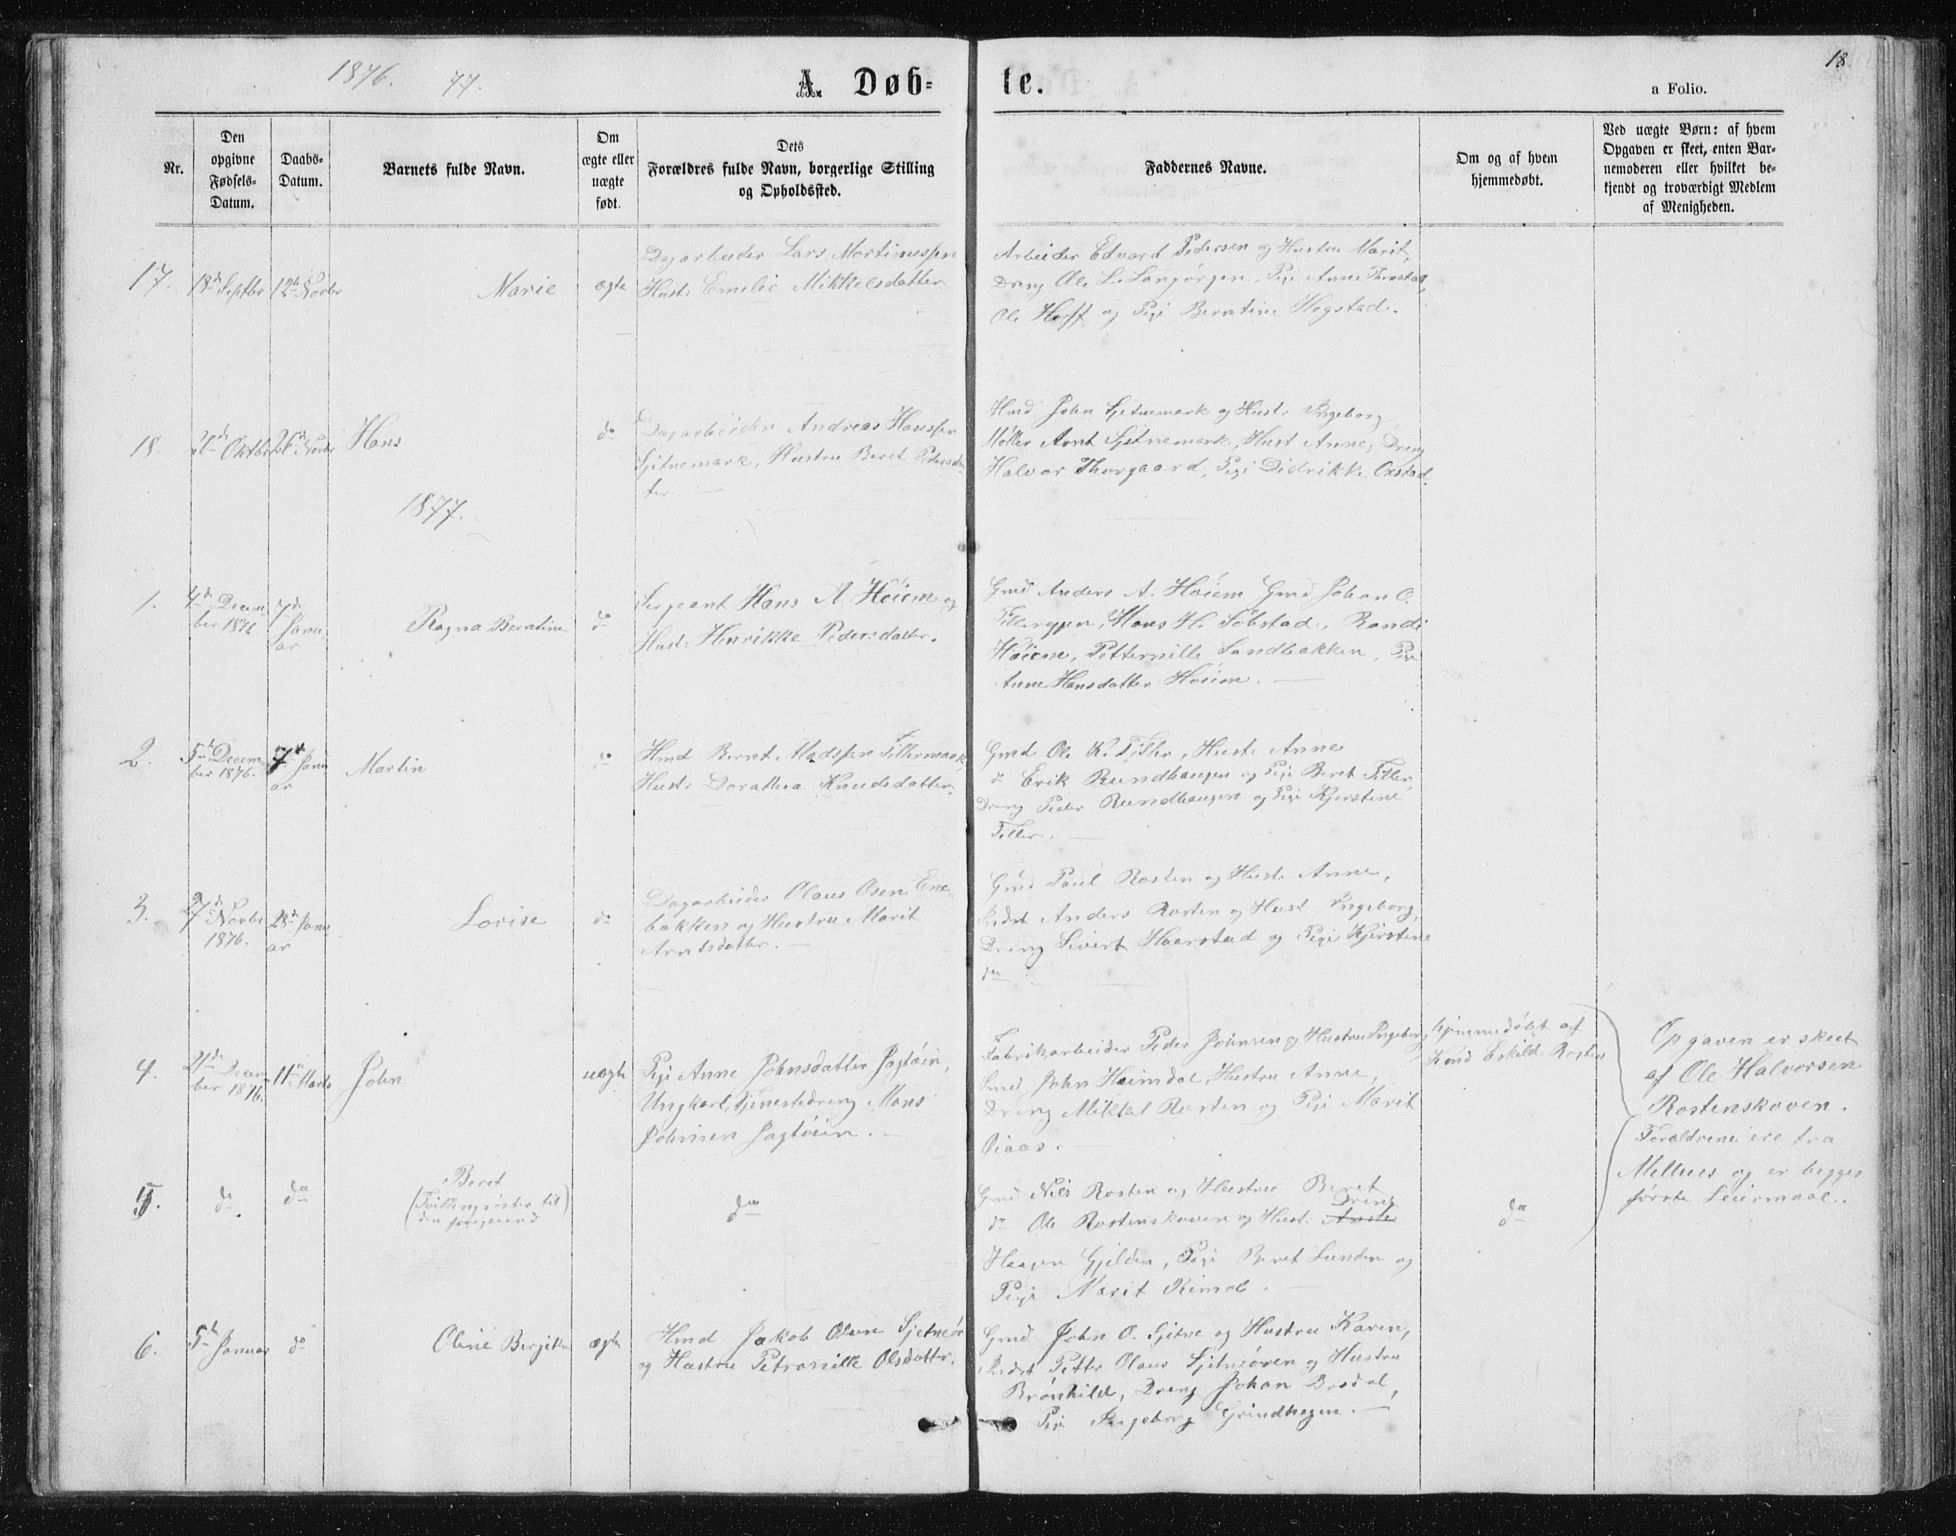 1876. 77.
A. Døb-
te.
18
a Folio.
Nr.
Den
opgivne
Fødsels-
Datum.
Daabs-
Datum.
Barnets fulde Navn.
Om
ægte eller
uægte
født.
Dets
Forældres fulde Navn, borgerlige Stilling
og Opholdssted.
Faddernes Navne.
Om og af hvem
hjemmedøbt.
Ved uægte Børn: af hvem
Opgaven er skeet, enten Bar-
nemoderen eller hvilket be-
kjendt og troværdigt Medlem
af Menigheden.
17.
18de Septbr
12te Novbr
Marie
ægte
Dagarbeider Lars Martinussen
Hust: Emelie Mikkelsdatter
Arbeider Edvard Pedersen og Hustru Marit,
Dreng Ole L. Langørgen, Pige Anne Thonstad,
Ole Hoff og Pige Berntine Hogstad.
18.
Oktbr
26de Novbr
Hans
do
Dagarbeider Andreas Hanssen
Sjetnemark, Hustru Beret Pedersdat-
ter
Hmd John Sjetnemark og Hust: Ingeborg
Møller Arnt Sjetnemark, Hust Anne, Dreng
Halvor Thorgaard, Pige Didrikke Oxstad.
1877.
1.
4de Decem
ber 1876.
7de
Janu
ar
Ragna Berntine
do
Sergeant Hans A. Høiem og
Hust: Henrikke Pedersdatter.
Gmd Anders A. Høiem Gmd Johan O.
Tillereggen, Hans H. Søbstad, Randi
Høiem, Petternille Sandbakken, Pige
Anne Hansdatter Høiem.
2.
5te Decem
ber 1876.
7de Janu
ar
Martin
do
Hmd Bernt Madssen Tillermark,
Hust: Dorathea Knudsdatter.
Gmd Ole K. Tiller, Hust: Anne
do Erik Rundhaugen og Pige Beret Tiller
Dreng Peder Rundhaugen og Pige Kjerstine
Tiller.
3.
27de Novbr
1876.
28de Janu
ar
Lovise
do
Dagarbeider Olaus Osen Ene-
bakken og Hustru Marit
Arntsdatter.
Gmd Paul Rosten og Hust: Anne,
Anders Rosten og Hust. Ingeborg,
Dreng Sivert Haarstad og Pige Kjerstine
do
4.
21de Decem
ber 1876.
11te Marts
John
uægte
Pige Anne Johnsdatter Jagtøien,
Ungkarl, Tjenestedreng Mons
Johnsen Jagtøien.
Fabrikarbeider Peder Johnsen og Hustru Ingeborg,
Gmd John Heimdal, Hustru Anne,
Dreng Mikkel Rosten og Pige Marit
Øiaas.
hjemmedøbt af
Kmd Eskild Rosten
Opgaven er skeet
af Ole Halvorsen
Rostenskoven.
Forældrene ere fra
Melhus og er begges
første Leiermaal.
5.
do
do
Beret
(Tvillingsøster til
den foregaaend)
do
Gmd Nils Rosten og Hustru Beret
do Ole Rostenskoven og Hust: Dreng
Haagen Gjelden, Pige Beret Lunden og
Pige Marit Rimol.
do
6.
5te Januar
do
Oline Bergitte
ægte
Hmd Jakob Olsen Sjetneør
og Hustru Petronille Olsdatter.
Gmd John O. Sjetne og Hustru Karen,
Petter Olaus Sjetneøren og Hustru
Brønhild, Dreng Johan Bredal,
Pige Ingeborg Grindhagen.